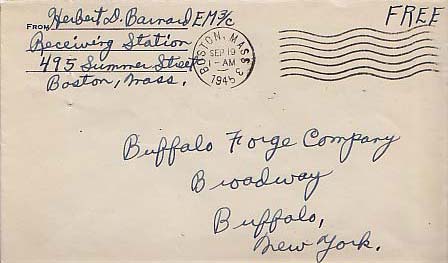 FROM Herbert D. Barnard EM3/c
Receiving Station
495 Summer Street
Boston, Mass.
BOSTON, MASS.
SEP 19
1-AM
1945
FREE
Buffalo Forge Company
Broadway
Buffalo,
New York.